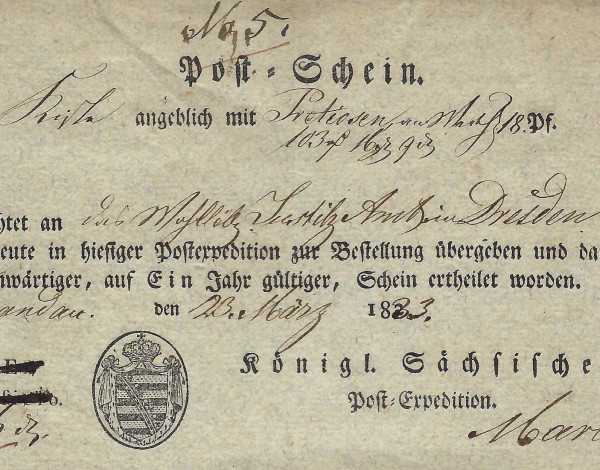 No 5.
Post-Schein.
Kiste angeblich mit Pretiosen an Werth 18 Pf.
103 16 9
htet an das Wohllöbl. Justiz Amt in Dresden
eute in hiesiger Postexpedition zur Bestellung übergeben und da
nwärtiger, auf Ein Jahr gültiger, Schein ertheilet worden.
andau. den 23. März 1833.
Königl. Sächsische
Post-Expedition.
Mar